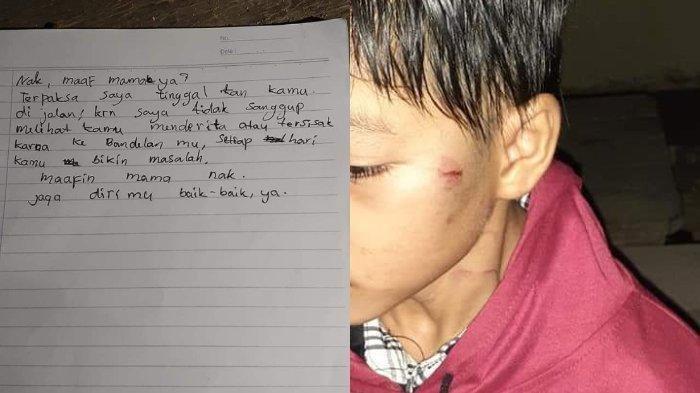 No:
Date:
Nak, maaf mamak ya?
Terpaksa saya tinggal kan kamu
di jalan, krn saya tidak sanggup
melihat kamu menderita atau tersisak
karna ke Bandelan mu, setiap hari
kamu bikin masalah.
maafin mama nak.
jaga diri mu baik-baik, ya.